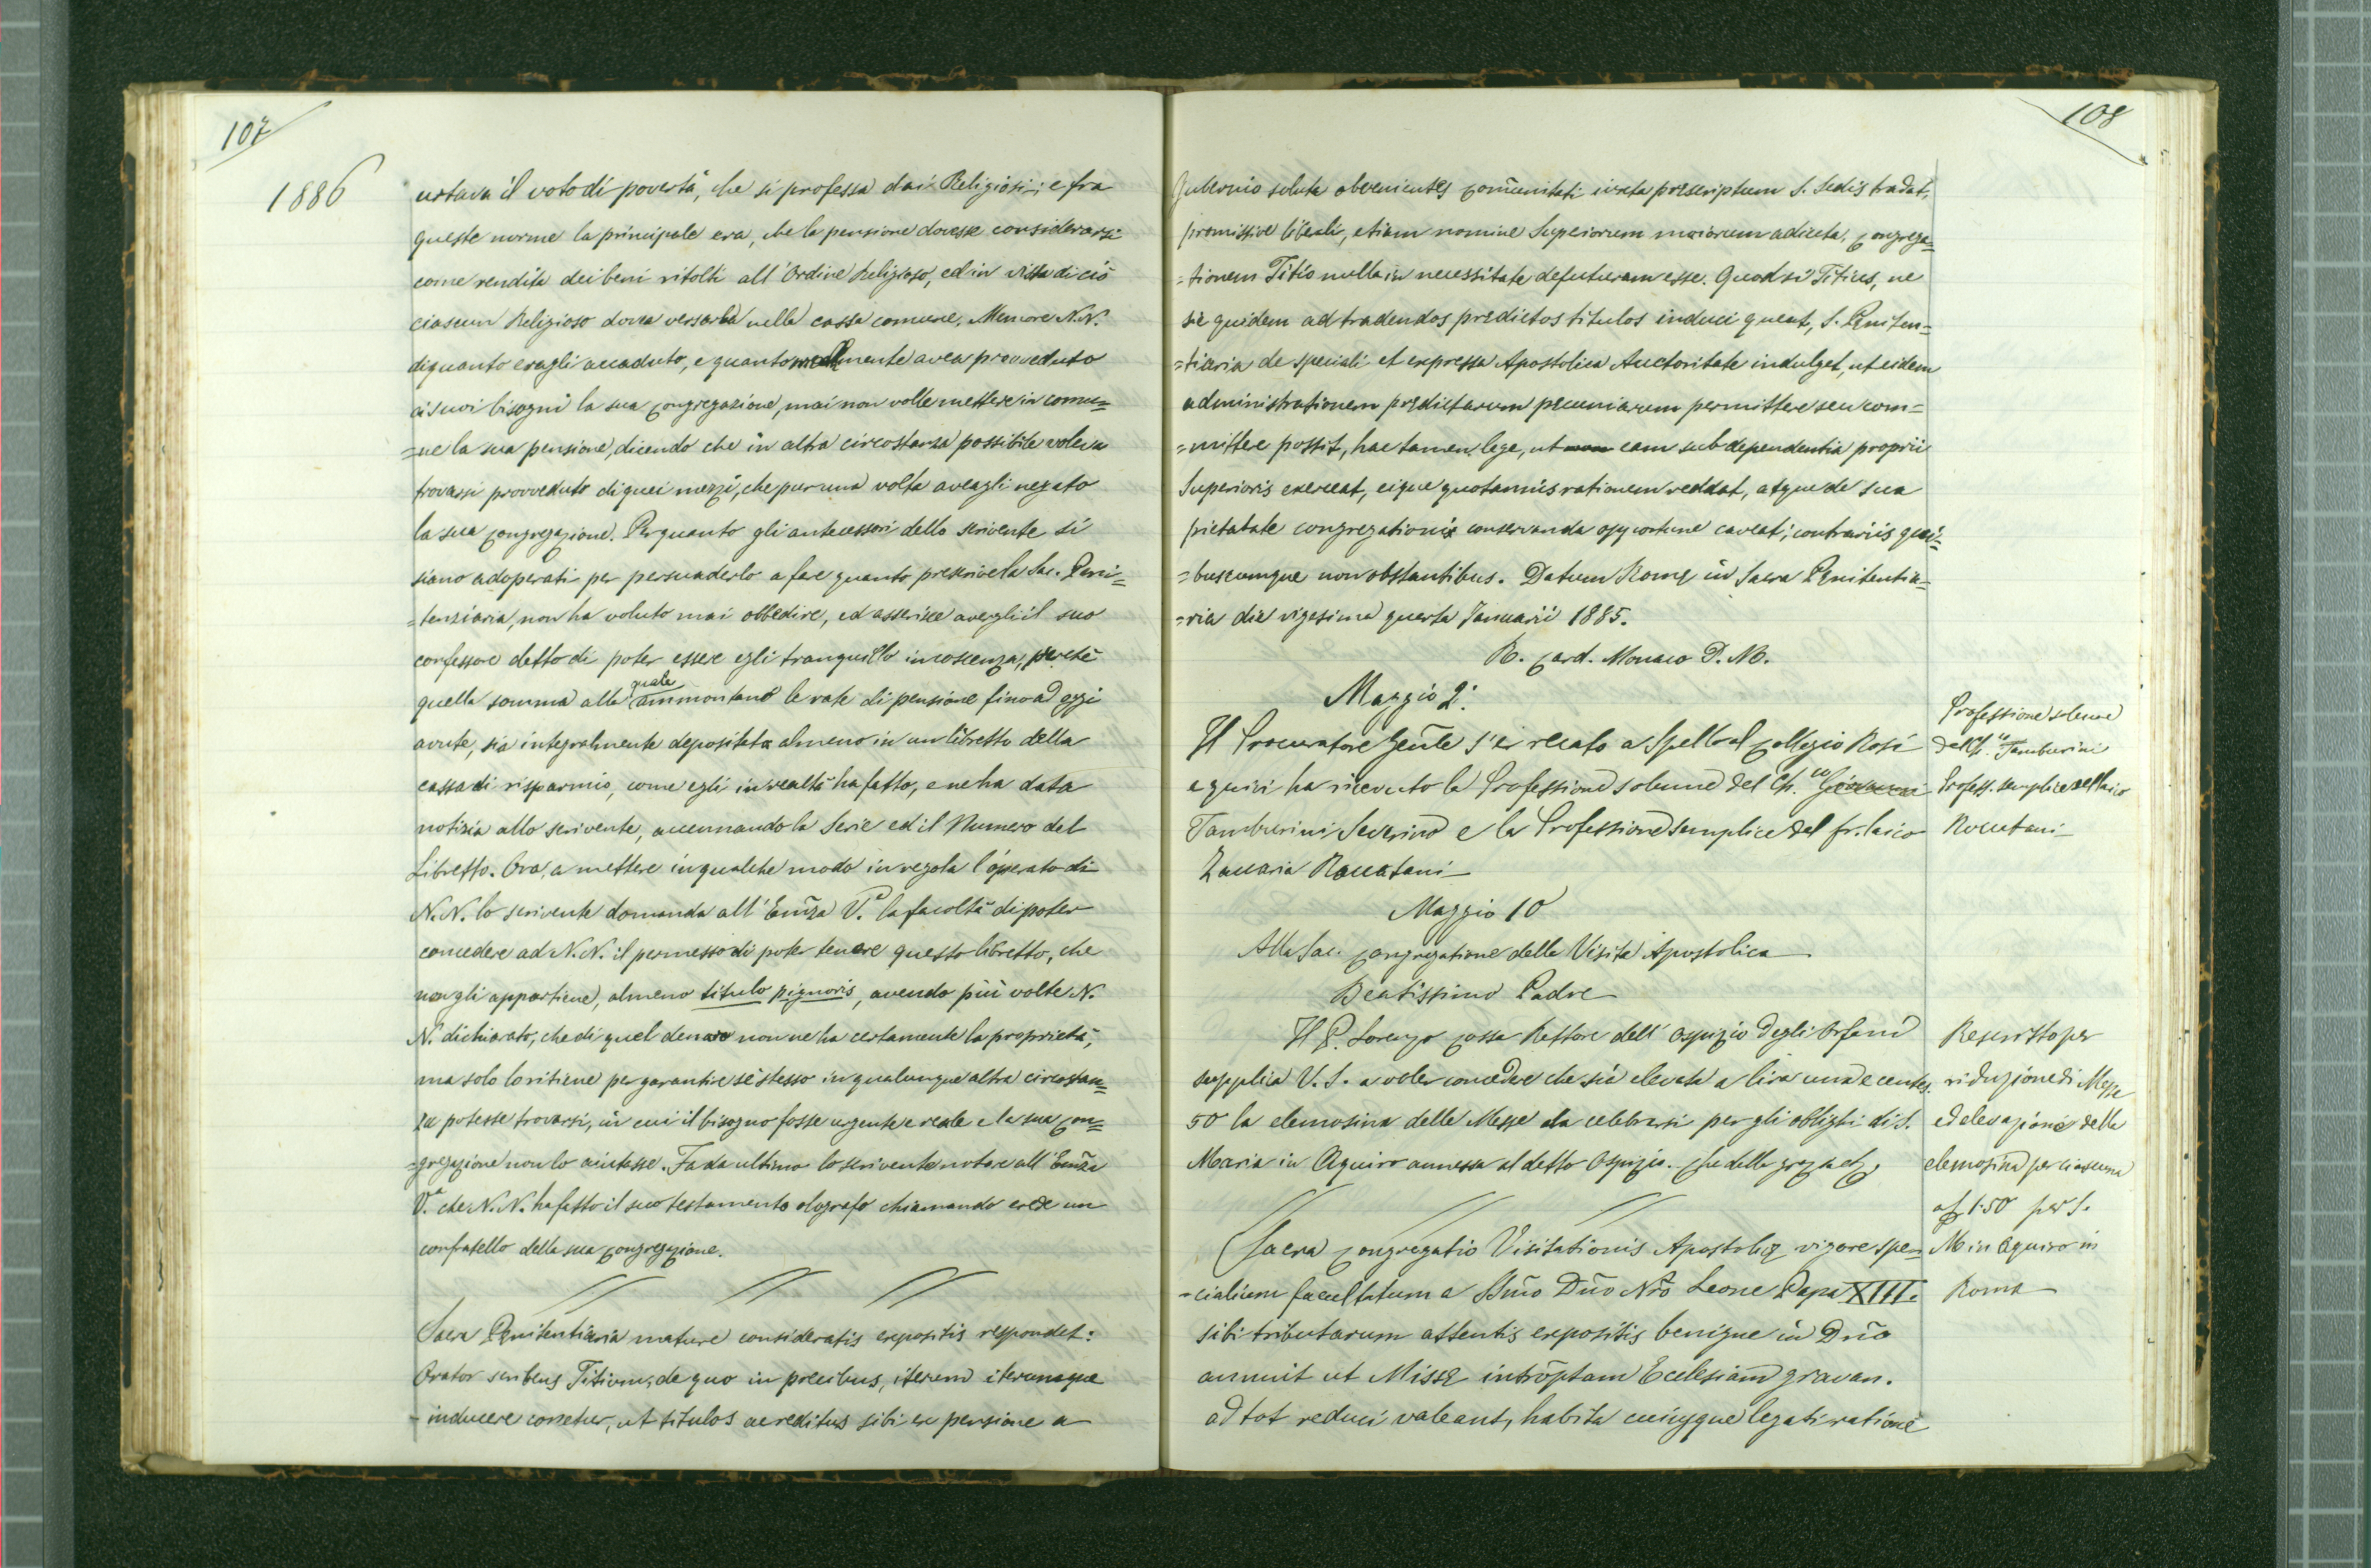 107
1886
urtava il voto di povertà, che si professa dai Religiosi; e fra
queste norme la principale era, che la pensione dovesse considerarsi
come rendita dei beni ritolti all'Ordine Religioso, ed in vista di ciò
ciascun Religioso dovea versarla nella cassa comune. Memore N.N.
di quanto eragli accaduto, e quanto malamente avea provveduto
ai suoi bisogni la sua Congregazione, mai non volle mettere in comu=
=ne la sua pensione, dicendo che in altra circostanza possibile voleva
trovarsi provveduto di quei mezzi, che pur una volta aveagli negato
la sua Congregazione. Per quanto gli antecessori dello scrivente si
siano adoperati per persuaderlo a fare quanto prescrive la Sac. Peni=
=tenziaria, non ha voluto mai obbedire, ed asserisce avergli il suo
confessore detto di poter essere egli tranquillo in coscienza, perchè
quella somma alla quale ammontano le rate di pensione fino ad oggi
avute, sia integralmente depositata almeno in un libretto della
cassa di risparmio, come egli in realtà ha fatto, e ne ha data
notizia allo scrivente, accennando la Serie ed il Numero del
Libretto. Ora, a mettere in qualche modo in regola l'operato di
N.N. lo scrivente domanda all'Emza V.ª la facoltà di poter
concedere ad N.N. il permesso di poter tenere questo libretto, che
non gli appartiene, almeno titulo pignoris, avendo più volte N.
N. dichiarato, che di quel denaro non ne ha certamente la proprietà,
ma solo lo ritiene per garantire sè stesso in qualunque altra circostan=
za potesse trovarsi, in cui il bisogno fosse urgente e reale e la sua Con=
=gregazione non lo aiutasse. Fa da ultimo lo scrivente notare all'Emza
V.ª che N.N. ha fatto il suo testamento olografo chiamando erede un
confratello della sua Congregazione.
Sacra Pœnitentiaria mature consideratis expositis respondet:
Orator scribens Titium, de quo in precibus, iterum iterumque
inducere conetur, ut titulos ac reditus sibi ex pensione a
108
Gubernio soluta obvenientes Com̃unitati iuxta præscriptum S. Sedis tradat,
promissione liberali, etiam nomine Superiorum maiorum adiecta, Congrega=
=tionem Titio nulla in necessitate defuturam esse. Quod si Titius, ne
sic quidem ad tradendos prædictos titulos induci queat, S. Pœniten=
=tiaria de speciali et expressa Apostolica Auctoritate indulget, ut eidem
administrationem prædictarum pecuniarum permittere seu com=
=mittere possit, hac tamen lege, ut non eam sub dependentia proprii
Superioris exerceat, eique quotannis rationem reddat, atque de sua
pietatate congregationis conservanda opportune caveat; contrariis qui=
=buscumque non obstantibus. Datum Romæ in Sacra Pœnitentia=
=ria die vigesima quarta Januarii 1885.
R. Card. Monaco P. M.
Maggio 2:
Il Procuratore Gen̄le s'è recato a Spello al Collegio Rosi
e quivi ha ricevuto la Professione solenne del Ch.co Giovanni
Tamburini Severino e la Professione semplice del fr. laico
Zaccaria Roccatani
Professione solenne
del Ch.co Tamburini
Profess. semplice del laico
Roccatani
Maggio 10
Alla Sac. Congregatione della Visita Apostolica
Beatissimo Padre
Il P. Lorenzo Cossa Rettore dell'Ospizio degli Orfani
supplica V. S. a voler concedere che sia elevata a lira una e centes.
50 la elemosina delle Messe da celebrarsi per gli obblighi di S.
Maria in Aquiro annessa al detto Ospizio. Che della grazia etc,
Rescritto per
riduzione di Messe
ed elevazione della
elemosina per ciascuna
a £ 1.50 per S.
M in Aquiro in
Roma
Sacra Congregatio Visitationis Apostolicæ vigore spe=
=cialium facultatum a SSm̃o Dño Nr̃o Leone Papa XIII.
sibi tributarum attentis expositis benigne in Dño
annuit ut Missæ introptam Ecclesiam gravan.
ad tot reduci valeant, habita cuiusque legati ratione